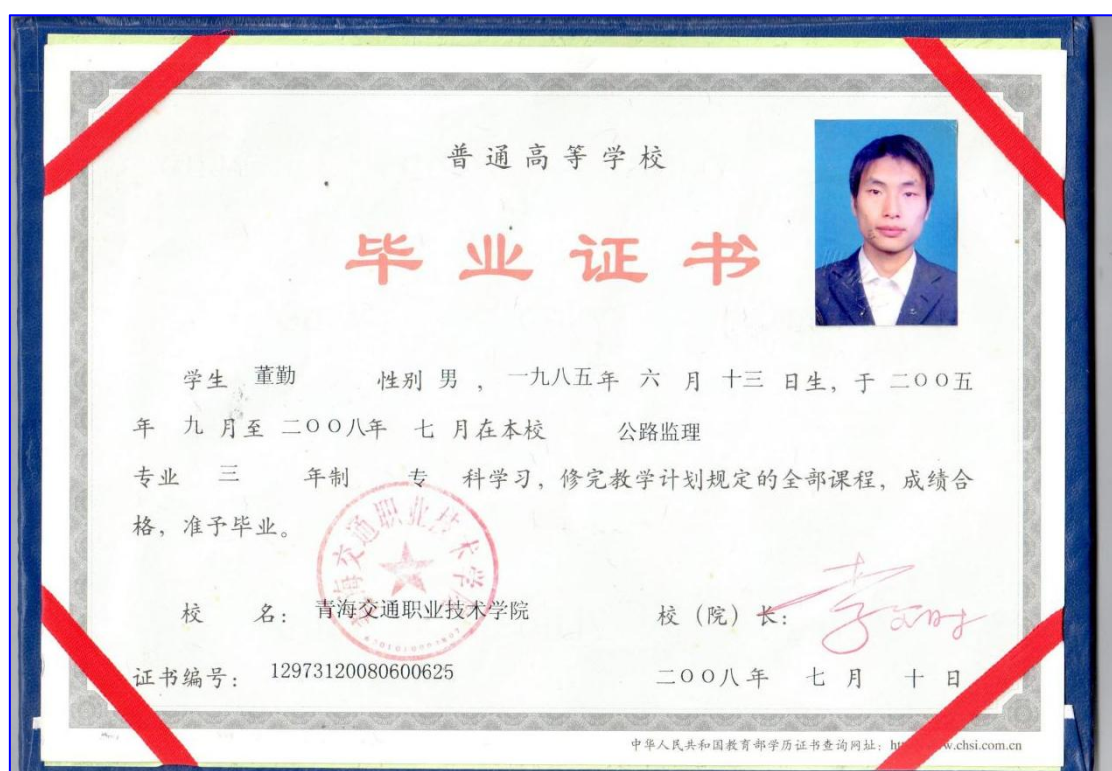 普通高等学校
毕业证书
学生 董勤 性别 男 ，一九八五年 六 月 十三 日生，于 二○○五
年 九 月至 二○○八年 七 月在本校 公路监理
专业 三 年制 专 科学习，修完教学计划规定的全部课程，成绩合
格，准予毕业。
青海交通职业技术学院
校 名： 青海交通职业技术学院 校（院）长：
证书编号： 12973120080600625 二○○八年 七 月 十 日
中华人民共和国教育部学历证书查询网址：ht w.chsi.com.cn